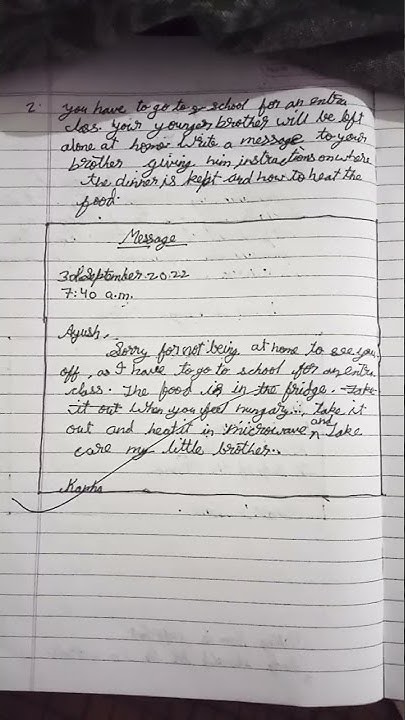 2. you have to go to school for an extra
class. Your younger brother will be left
alone at home. Write a message to your
brother giving him instructions on where
the dinner is kept and how to heat the
food.
Message
3rd September 2022
7:40 a.m.
Ayush,
Sorry for not being at home to see you
off, as I have to go to school for an extra
class. The food is in the fridge. Take
it out When you feel hungary..., take it
out and heat it in microwave and Take
care my little brother.